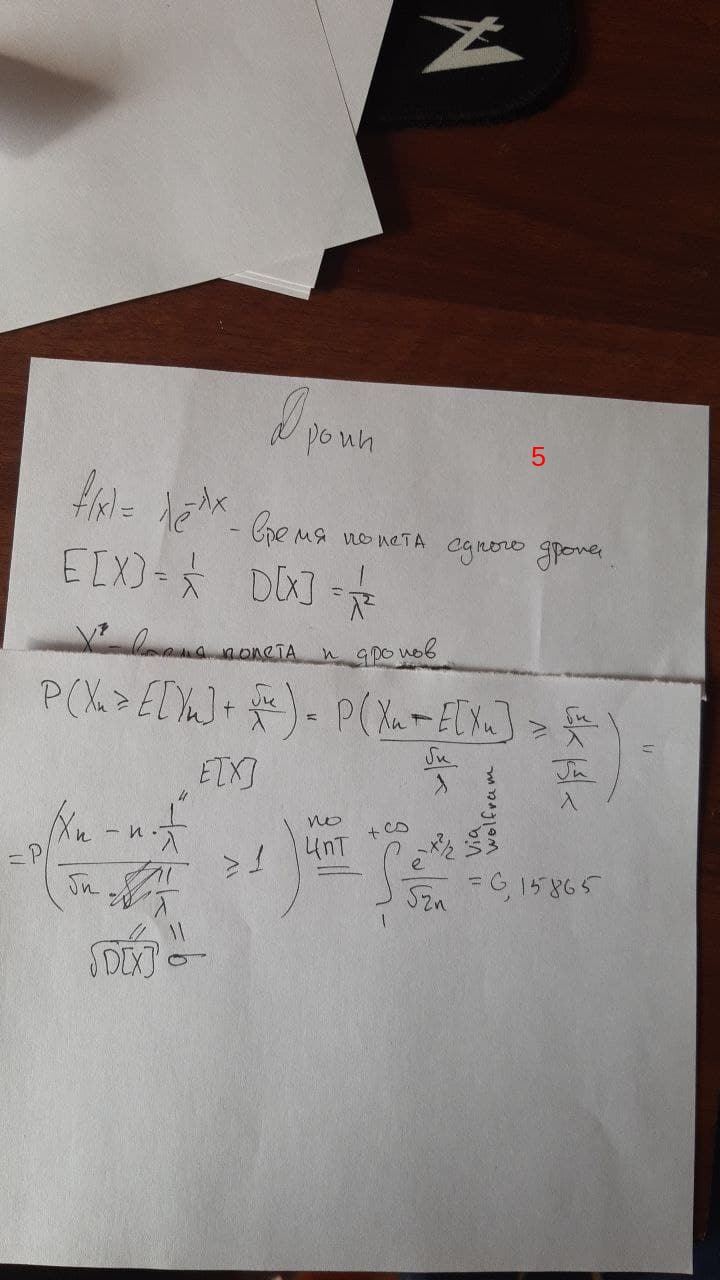 Дрони
5
f(x) = λe^{-λx} - время полета одного дрона.
E[X] = 1/λ D[X] = 1/λ²
время полета n дронов
P(Xn ≥ E[Xn] + √n/λ) = P((Xn - E[Xn])/(√n/λ) ≥ (√n/λ)/(√n/λ)) =
E[X]
= P((Xn - n·1/λ)/(√n · 1/λ) ≥ 1) по ЦПТ = ∫₁^{+∞} e^{-x²/2}/√2π = 0,15865 via wolfram
√D[X] σ